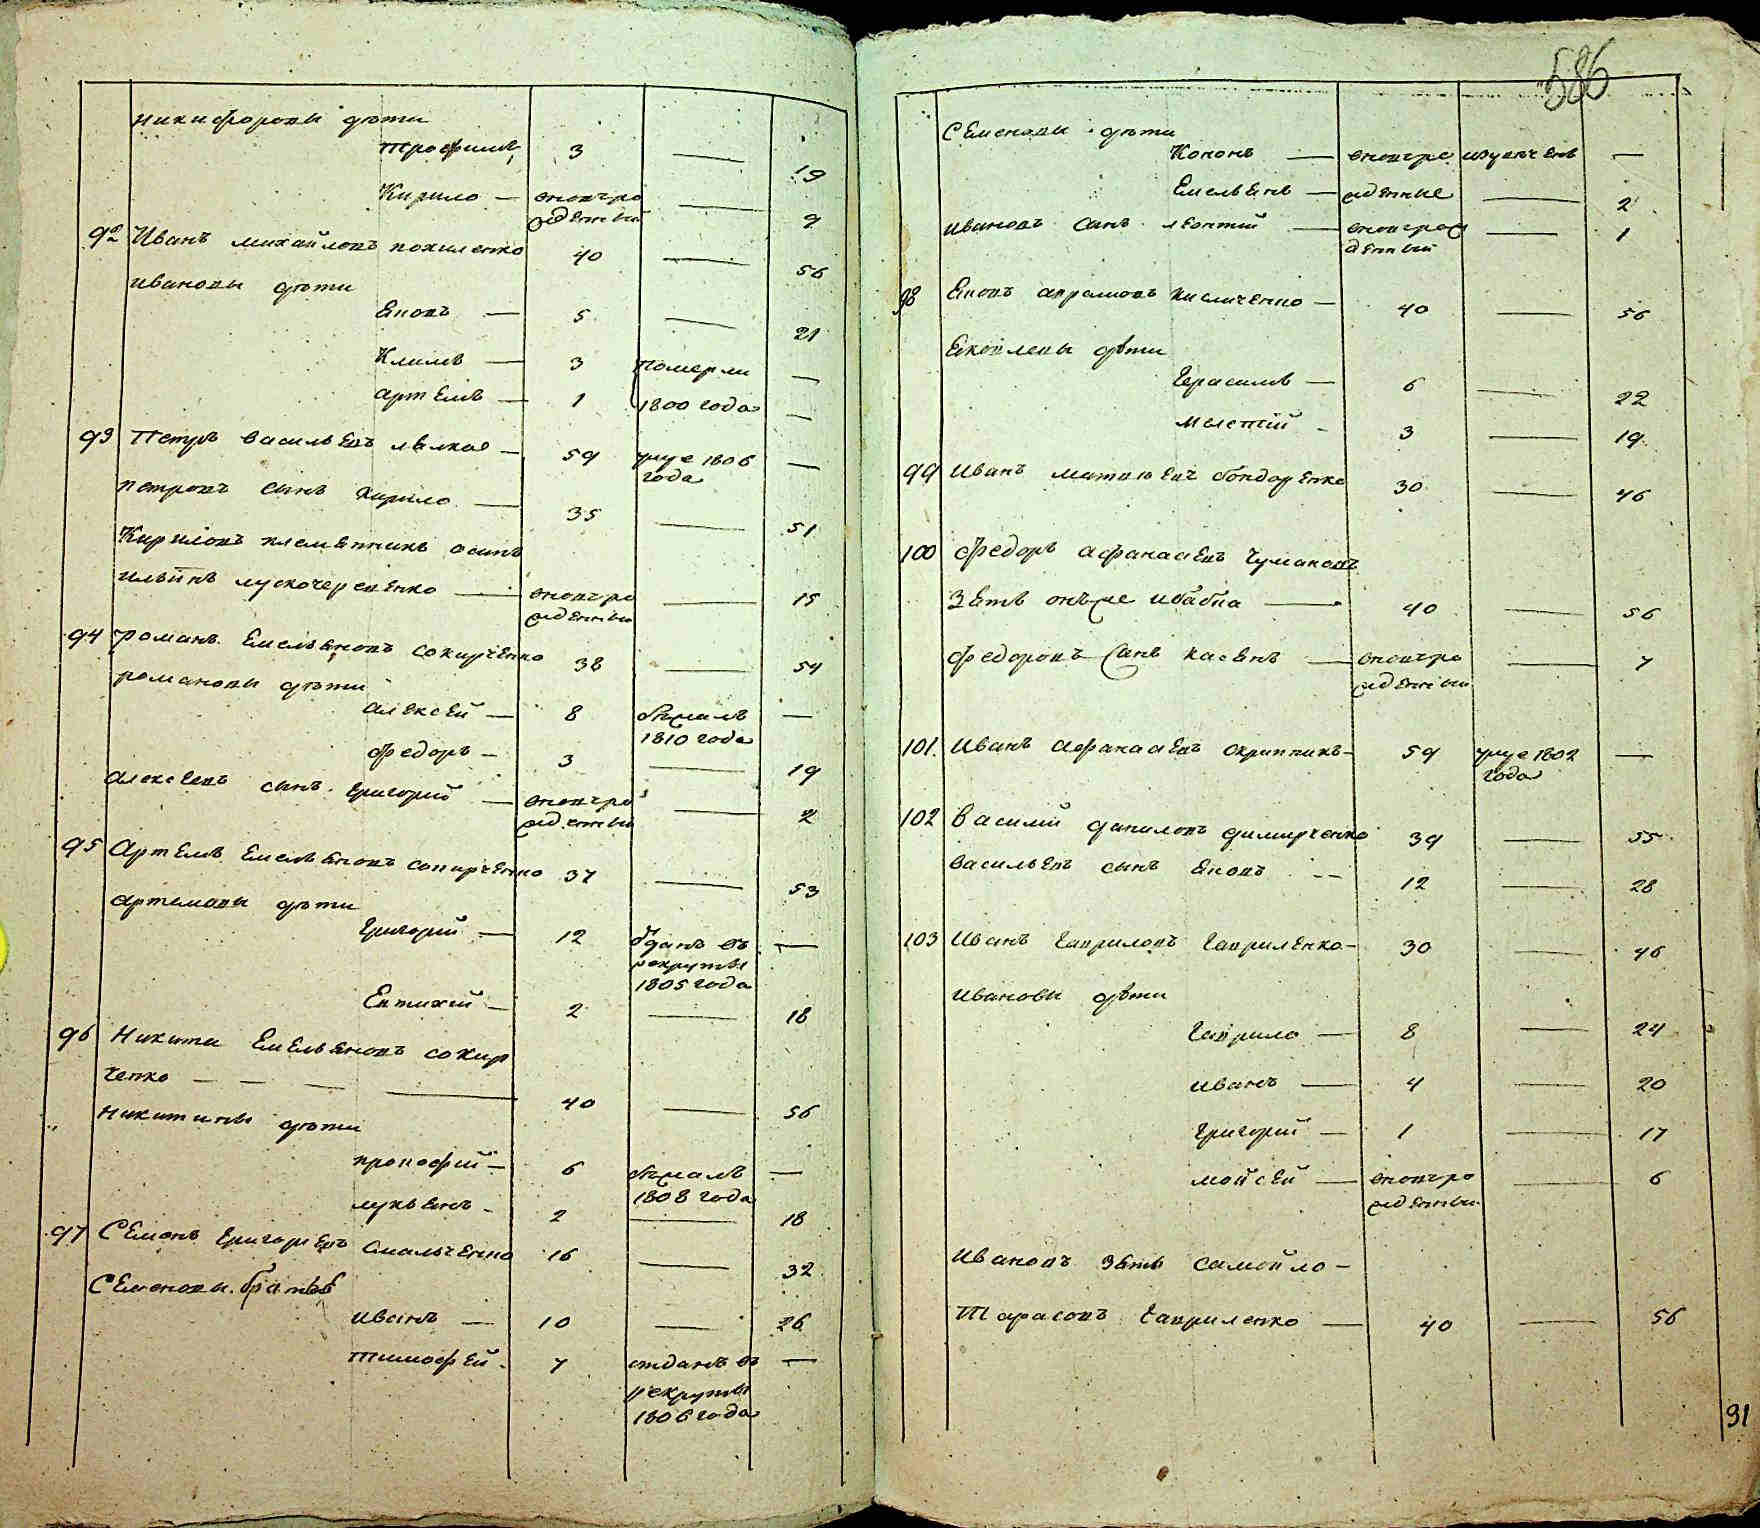 никифоровы дѣти
Трофимъ 3 — 19
Кирило — вновьро
жденный — 9
92 Иванъ михайловъ похиленко 40 — 56
ивановы дѣти
Яковъ — 5 — 21
Климъ — 3 померли —
артемъ — 1 1800 года —
93 Петръ васильевъ — 59 умре 1806 —
года
петровъ сынъ кирило — 35 — 51
Кириловъ племянникъ осипъ
ильинъ — вновьро — 15
жденный
94 романъ Емельяновъ сокирченко 38 — 54
романовы дѣти
алексей — 8 бѣжалъ —
1810 года
федоръ — 3 — 19
алексѣевъ сынъ григорий — вновьро — 2
жденный
95 Артемъ Емельяновъ сокирченко 37 — 53
артемовы дѣти
григорий — 12 отданъ въ —
рекруты
1805 года
Евтихий — 2 — 18
96 Никита Емельяновъ сокир
ченко — — — 40 — 56
никитины дѣти
прокофий — 6 бѣжалъ —
1808 года
лукьянъ - 2 — 18
97 Семенъ григорьевъ смальченко 16 — 32
Семеновы братья
иванъ — 10 — 26
тимофей - 7 отданъ въ —
рекруты
1806 года
586
Семеновы дѣти
Кононъ — вновьро изключенъ —
Емельянъ — жденные — 2
ивановъ сынъ леонтий — вновьрож — 1
денный
98 Яковъ аврамовъ кисличенко — 40 — 56
Яковлевы дѣти
Герасимъ — 6 — 22
мелетий - 3 — 19
99 иванъ матвѣевъ бондаренко 30 — 46
100 Федоръ афанасьевъ Чумаковъ
Зять онъже — 40 — 56
федоровъ сынъ касьянъ — вновьро — 7
жденный
101 иванъ афанасьевъ скрипникъ — 59 умре 1802 —
года
102 Василий даниловъ димирченко 39 — 55
васильевъ сынъ яковъ -- 12 — 28
103 Иванъ Гавриловъ Гавриленко — 30 — 46
ивановы дѣти
Гаврило — 8 — 24
иванъ — 4 — 20
Григорий — 1 — 17
мойсей — вновьро — 6
жденный
ивановъ зять самойло —
Тарасовъ Гавриленко — 40 — 56
91